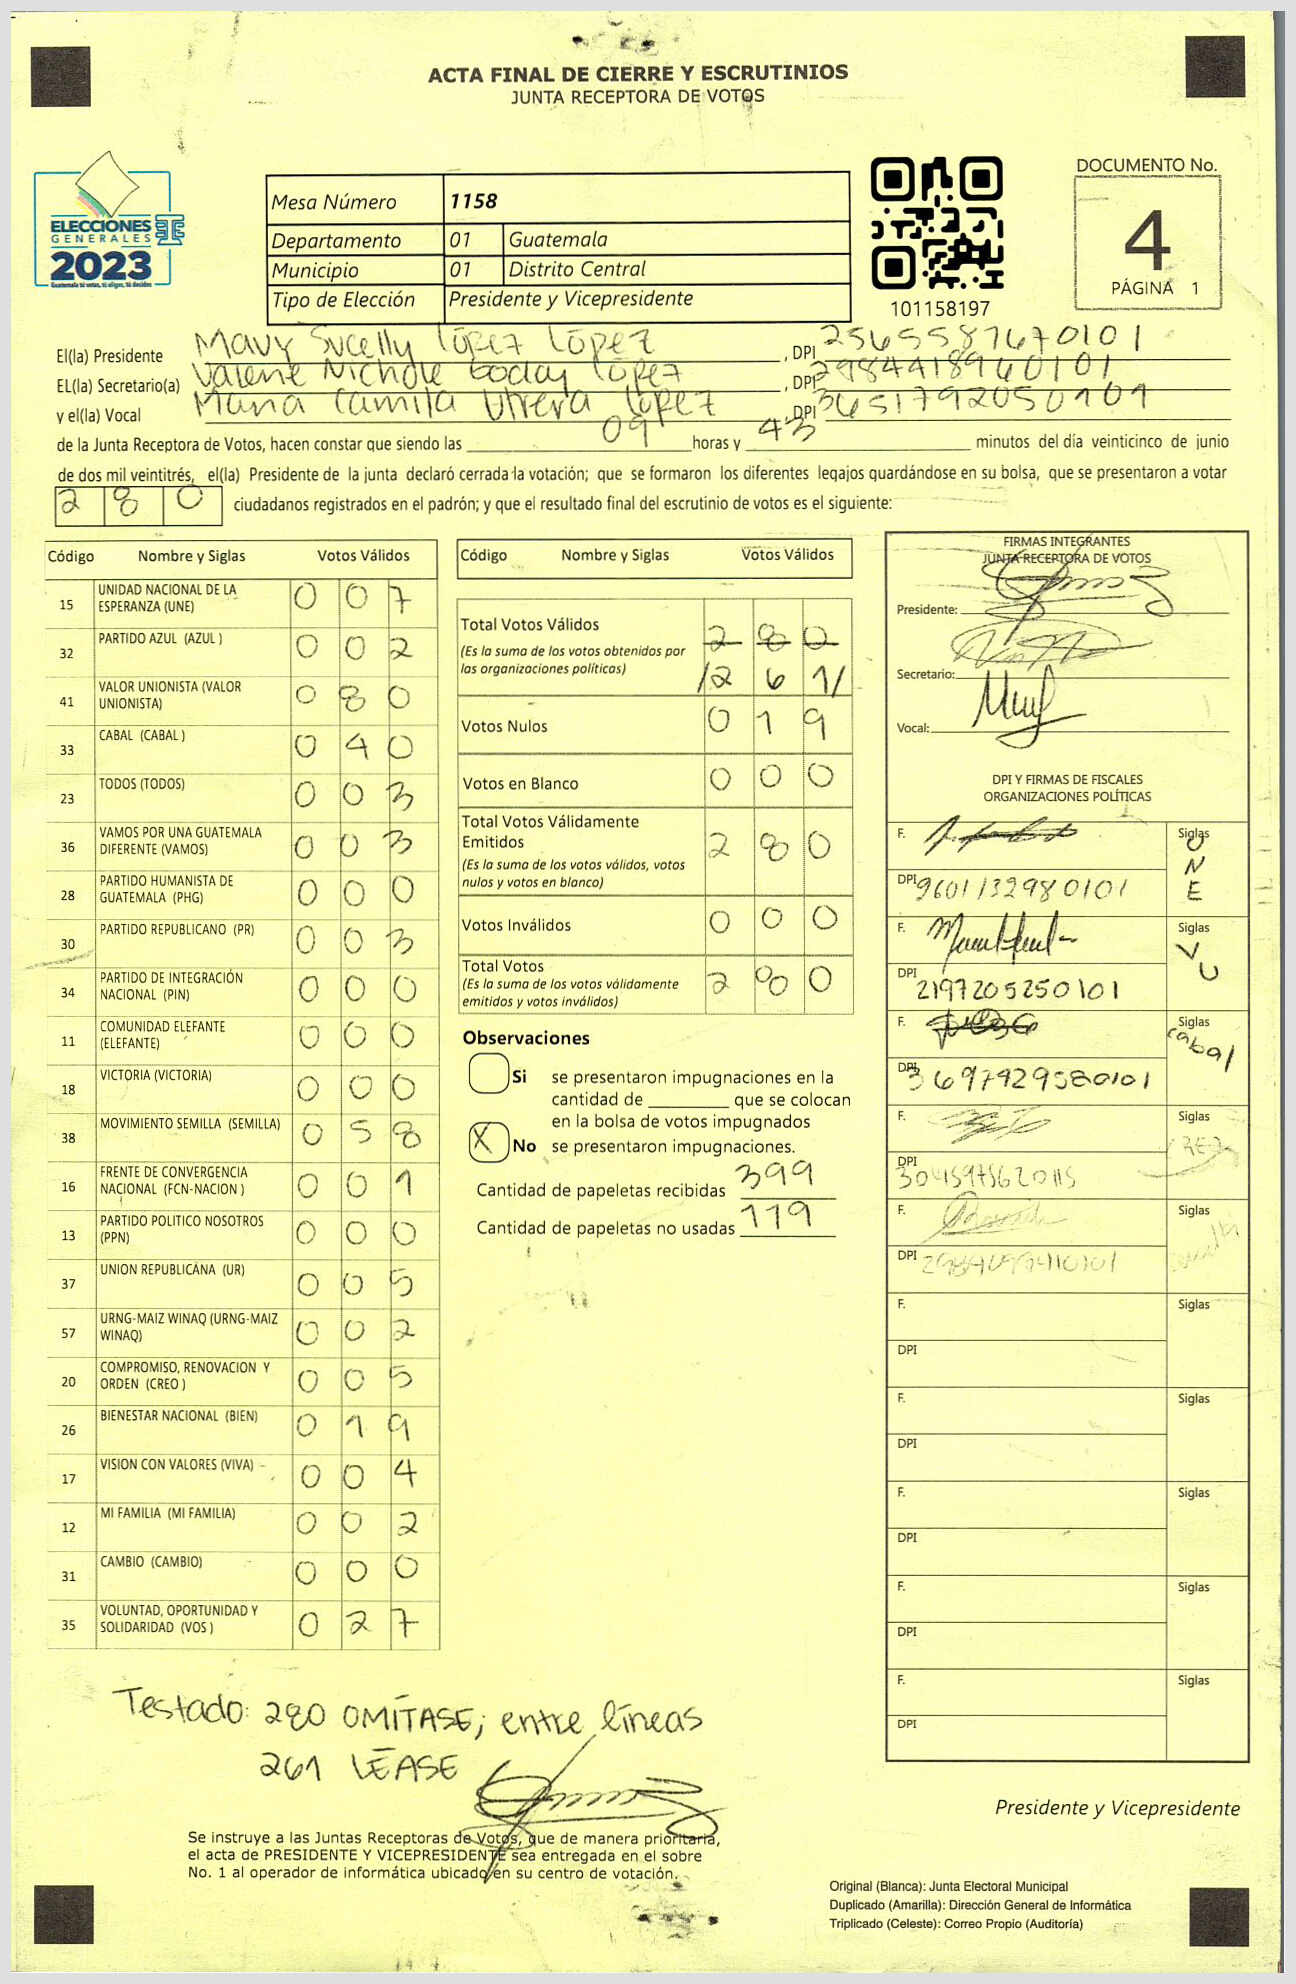 ACTA FINAL DE CIERRE Y ESCRUTINIOS
JUNTA RECEPTORA DE VOTOS
ELECCIONES
GENERALES
2023
Guatemala tú votas, tú eliges, tú decides
Mesa Número 1158
Departamento 01 Guatemala
Municipio 01 Distrito Central
Tipo de Elección Presidente y Vicepresidente
101158197
DOCUMENTO No.
4
PÁGINA 1
El(la) Presidente Mavy Sucelly López López, DPI 2565587670101
EL(la) Secretario(a) Valerie Nichole Godoy López, DPI 2984418960101
y el(la) Vocal María Camila Utrera López, DPI 3651792050101
de la Junta Receptora de Votos, hacen constar que siendo las 09 horas y 43 minutos del día veinticinco de junio
de dos mil veintitrés, el(la) Presidente de la junta declaró cerrada la votación; que se formaron los diferentes legajos guardándose en su bolsa, que se presentaron a votar
280 ciudadanos registrados en el padrón; y que el resultado final del escrutinio de votos es el siguiente:
Código Nombre y Siglas Votos Válidos
15 UNIDAD NACIONAL DE LA ESPERANZA (UNE) 0 0 7
32 PARTIDO AZUL (AZUL ) 0 0 2
41 VALOR UNIONISTA (VALOR UNIONISTA) 0 8 0
33 CABAL (CABAL ) 0 4 0
23 TODOS (TODOS) 0 0 3
36 VAMOS POR UNA GUATEMALA DIFERENTE (VAMOS) 0 0 3
28 PARTIDO HUMANISTA DE GUATEMALA (PHG) 0 0 0
30 PARTIDO REPUBLICANO (PR) 0 0 3
34 PARTIDO DE INTEGRACIÓN NACIONAL (PIN) 0 0 0
11 COMUNIDAD ELEFANTE (ELEFANTE) 0 0 0
18 VICTORIA (VICTORIA) 0 0 0
38 MOVIMIENTO SEMILLA (SEMILLA) 0 5 8
16 FRENTE DE CONVERGENCIA NACIONAL (FCN-NACION ) 0 0 1
13 PARTIDO POLITICO NOSOTROS (PPN) 0 0 0
37 UNION REPUBLICANA (UR) 0 0 5
57 URNG-MAIZ WINAQ (URNG-MAIZ WINAQ) 0 0 2
20 COMPROMISO, RENOVACION Y ORDEN (CREO ) 0 0 5
26 BIENESTAR NACIONAL (BIEN) 0 1 9
17 VISION CON VALORES (VIVA) 0 0 4
12 MI FAMILIA (MI FAMILIA) 0 0 2
31 CAMBIO (CAMBIO) 0 0 0
35 VOLUNTAD, OPORTUNIDAD Y SOLIDARIDAD (VOS ) 0 2 7
Código Nombre y Siglas Votos Válidos
Total Votos Válidos 2 8 0
(Es la suma de los votos obtenidos por
las organizaciones políticas) /2 6 1/
Votos Nulos 0 1 9
Votos en Blanco 0 0 0
Total Votos Válidamente
Emitidos 2 8 0
(Es la suma de los votos válidos, votos
nulos y votos en blanco)
Votos Inválidos 0 0 0
Total Votos 2 8 0
(Es la suma de los votos válidamente
emitidos y votos inválidos)
Observaciones
Si se presentaron impugnaciones en la
cantidad de ________ que se colocan
en la bolsa de votos impugnados
X No se presentaron impugnaciones.
Cantidad de papeletas recibidas 399
Cantidad de papeletas no usadas 119
FIRMAS INTEGRANTES
JUNTA RECEPTORA DE VOTOS
Presidente:
Secretario:
Vocal:
DPI Y FIRMAS DE FISCALES
ORGANIZACIONES POLÍTICAS
F. Siglas UNE
DPI 9601132980101
F. Siglas VU
DPI 2197205250101
F. Siglas cabal
DPI 3697929580101
F. Siglas
DPI
F. Siglas
DPI
F. Siglas
DPI
F. Siglas
DPI
F. Siglas
DPI
F. Siglas
DPI
F. Siglas
DPI
Testado: 280 OMÍTASE; entre líneas
261 LÉASE
Presidente y Vicepresidente
Se instruye a las Juntas Receptoras de Votos, que de manera prioritaria,
el acta de PRESIDENTE Y VICEPRESIDENTE sea entregada en el sobre
No. 1 al operador de informática ubicado en su centro de votación.
Original (Blanca): Junta Electoral Municipal
Duplicado (Amarilla): Dirección General de Informática
Triplicado (Celeste): Correo Propio (Auditoría)